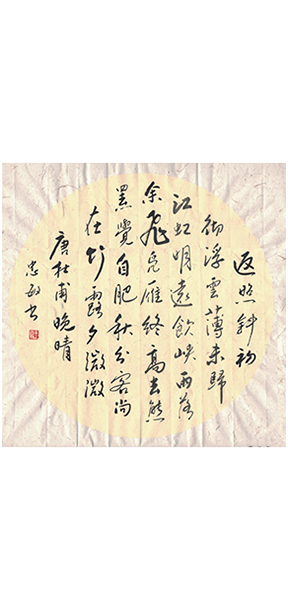 返照斜初
彻浮雲薄未歸
江虹明遠飲峡雨落
余飛凫雁終高去熊
罴覺自肥秋分客尚
在竹露夕微微
唐杜甫晚晴
忠书